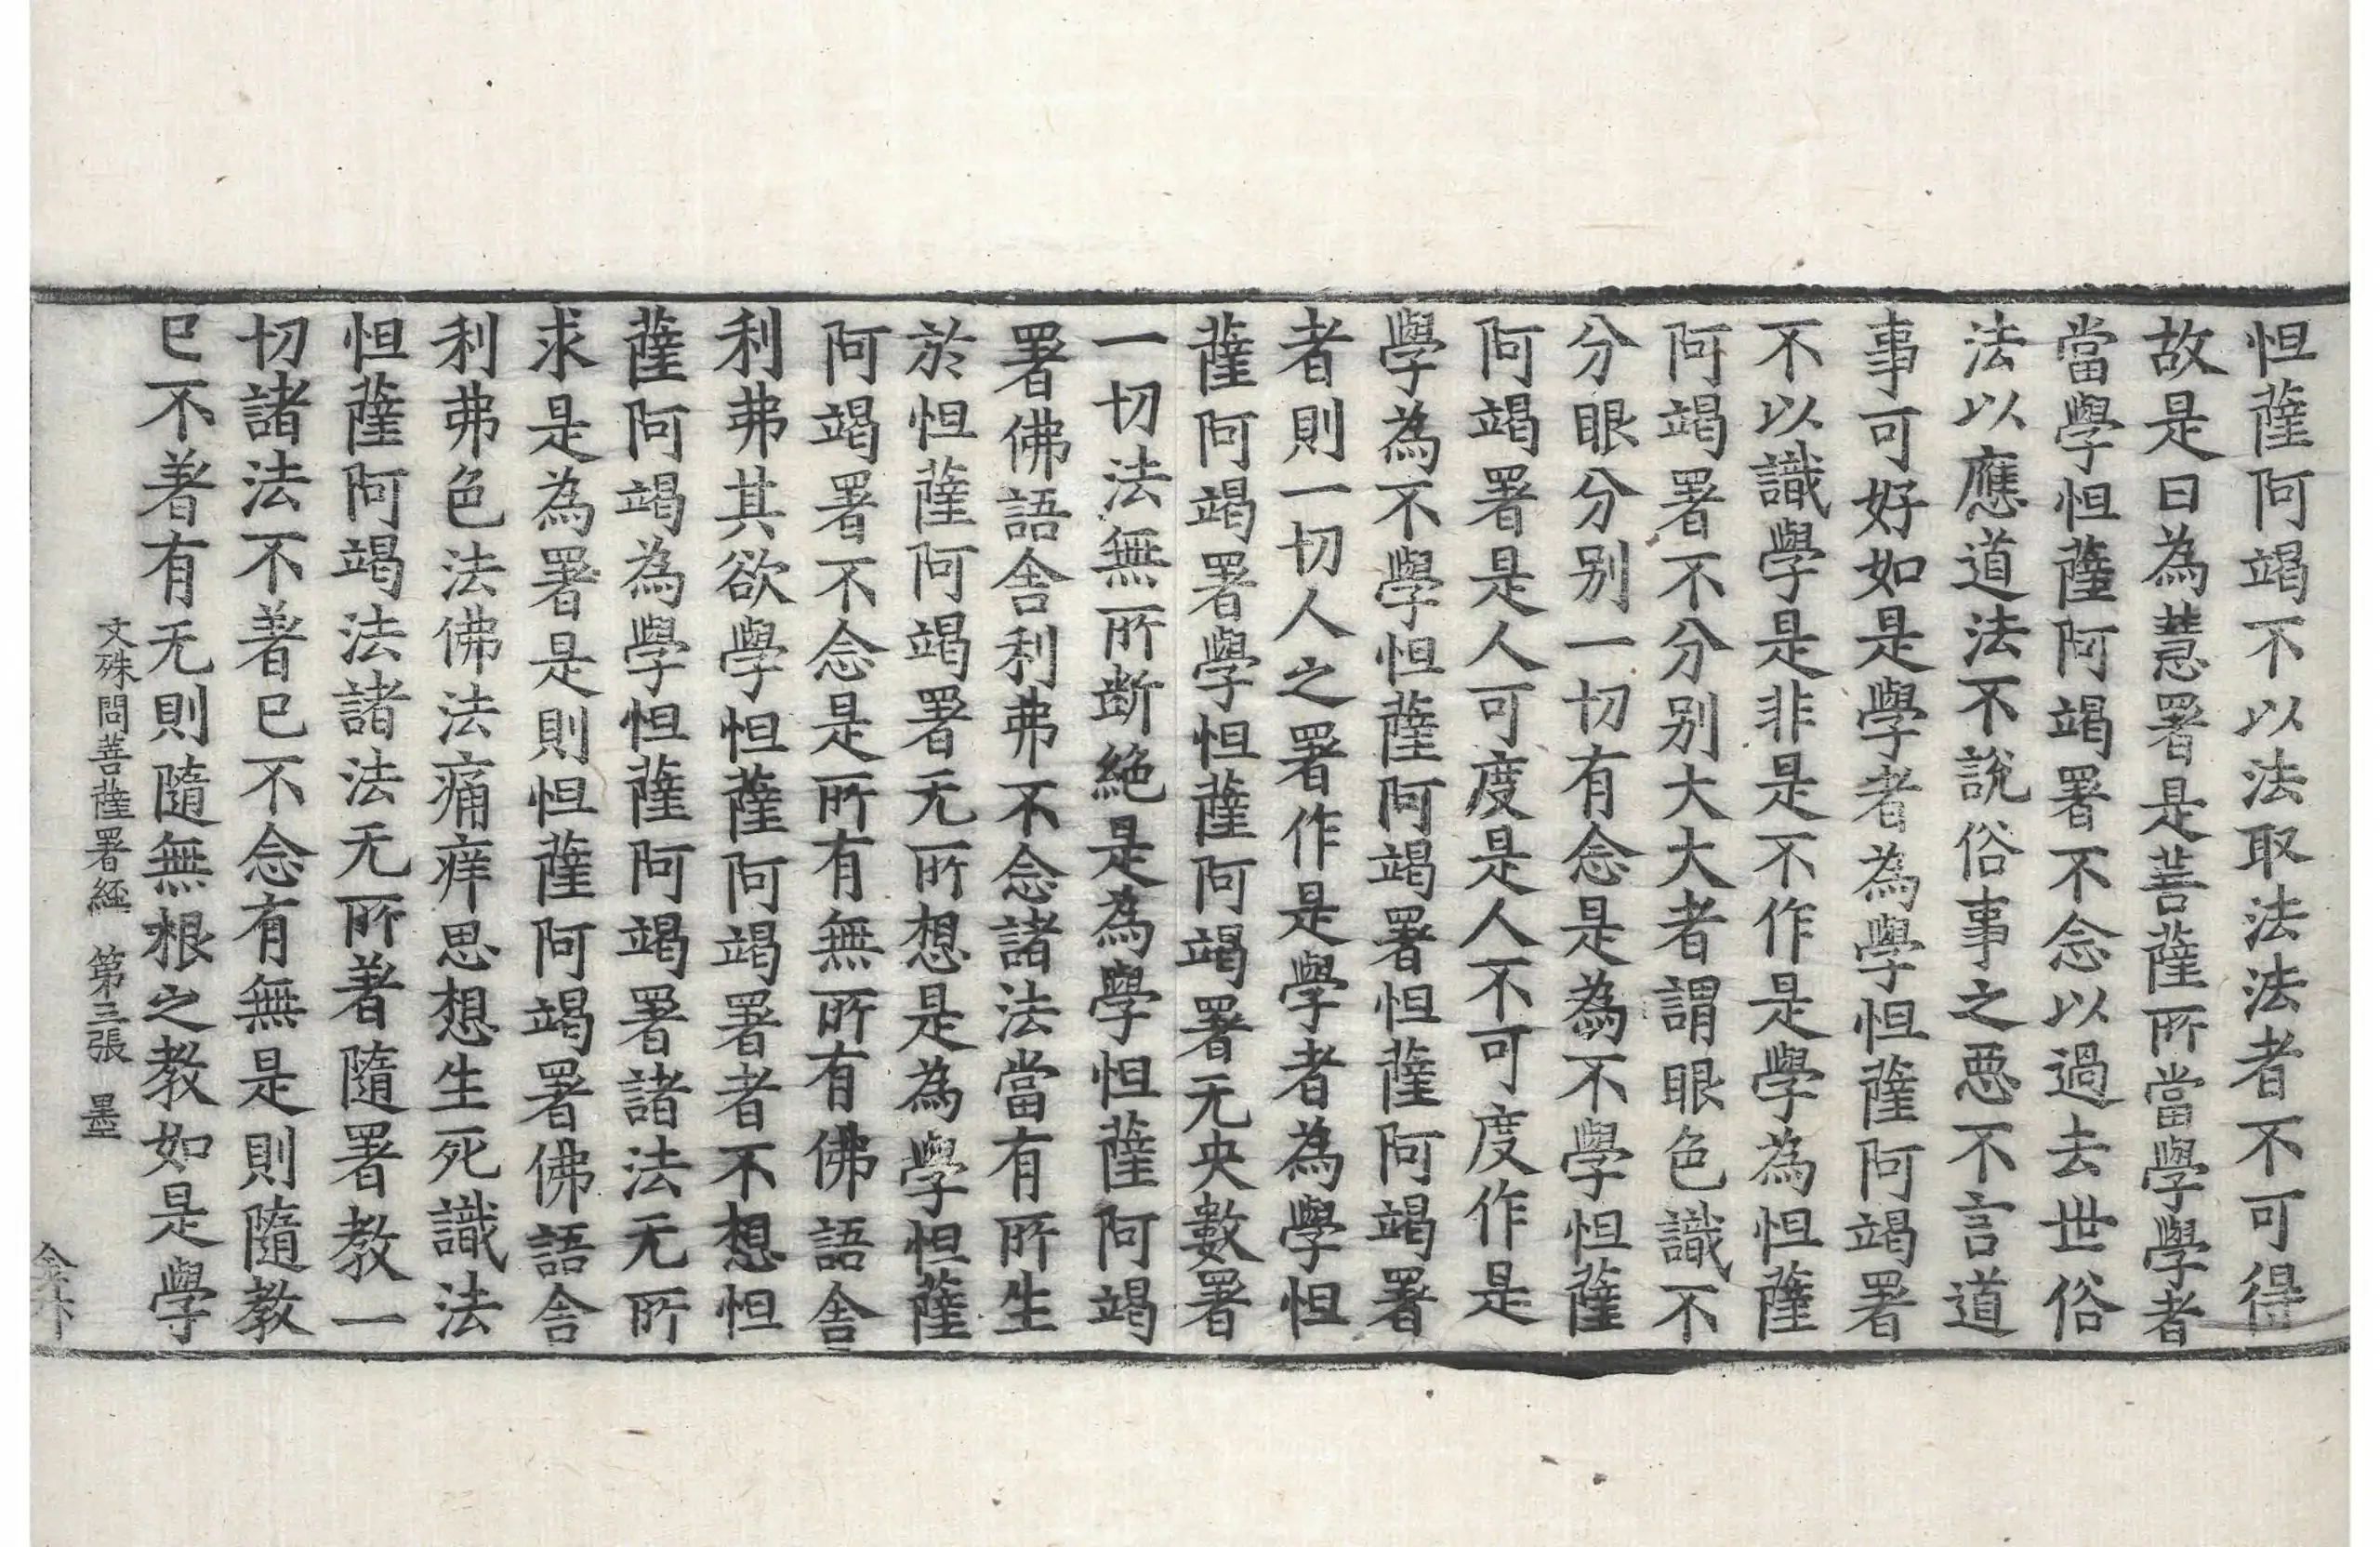 怛薩阿竭不以法取法法者不可得
故是曰為慧署是菩薩所當學學者
當學怛薩阿竭署不念以過去世俗
法以應道法不說俗事之惡不言道
事可好如是學者為學怛薩阿竭署
不以識學是非是不作是學為怛薩
阿竭署不分別大大者謂眼色識不
分眼分別一切有念是為不學怛薩
阿竭署是人可度是人不可度作是
學為不學怛薩阿竭署怛薩阿竭署
者則一切人之署作是學者為學怛
薩阿竭署學怛薩阿竭署无央數署
一切法無所斷絕是為學怛薩阿竭
署佛語舍利弗不念諸法當有所生
於怛薩阿竭署无所想是為學怛薩
阿竭署不念是所有無所有佛語舍
利弗其欲學怛薩阿竭署者不想怛
薩阿竭為學怛薩阿竭署諸法无所
求是為署是則怛薩阿竭署佛語舍
利弗色法佛法痛痒思想生死識法
怛薩阿竭法諸法无所著隨署教一
切諸法不著已不念有無是則隨教
已不著有无則隨無根之教如是學
文殊問菩薩署経 第三張 墨